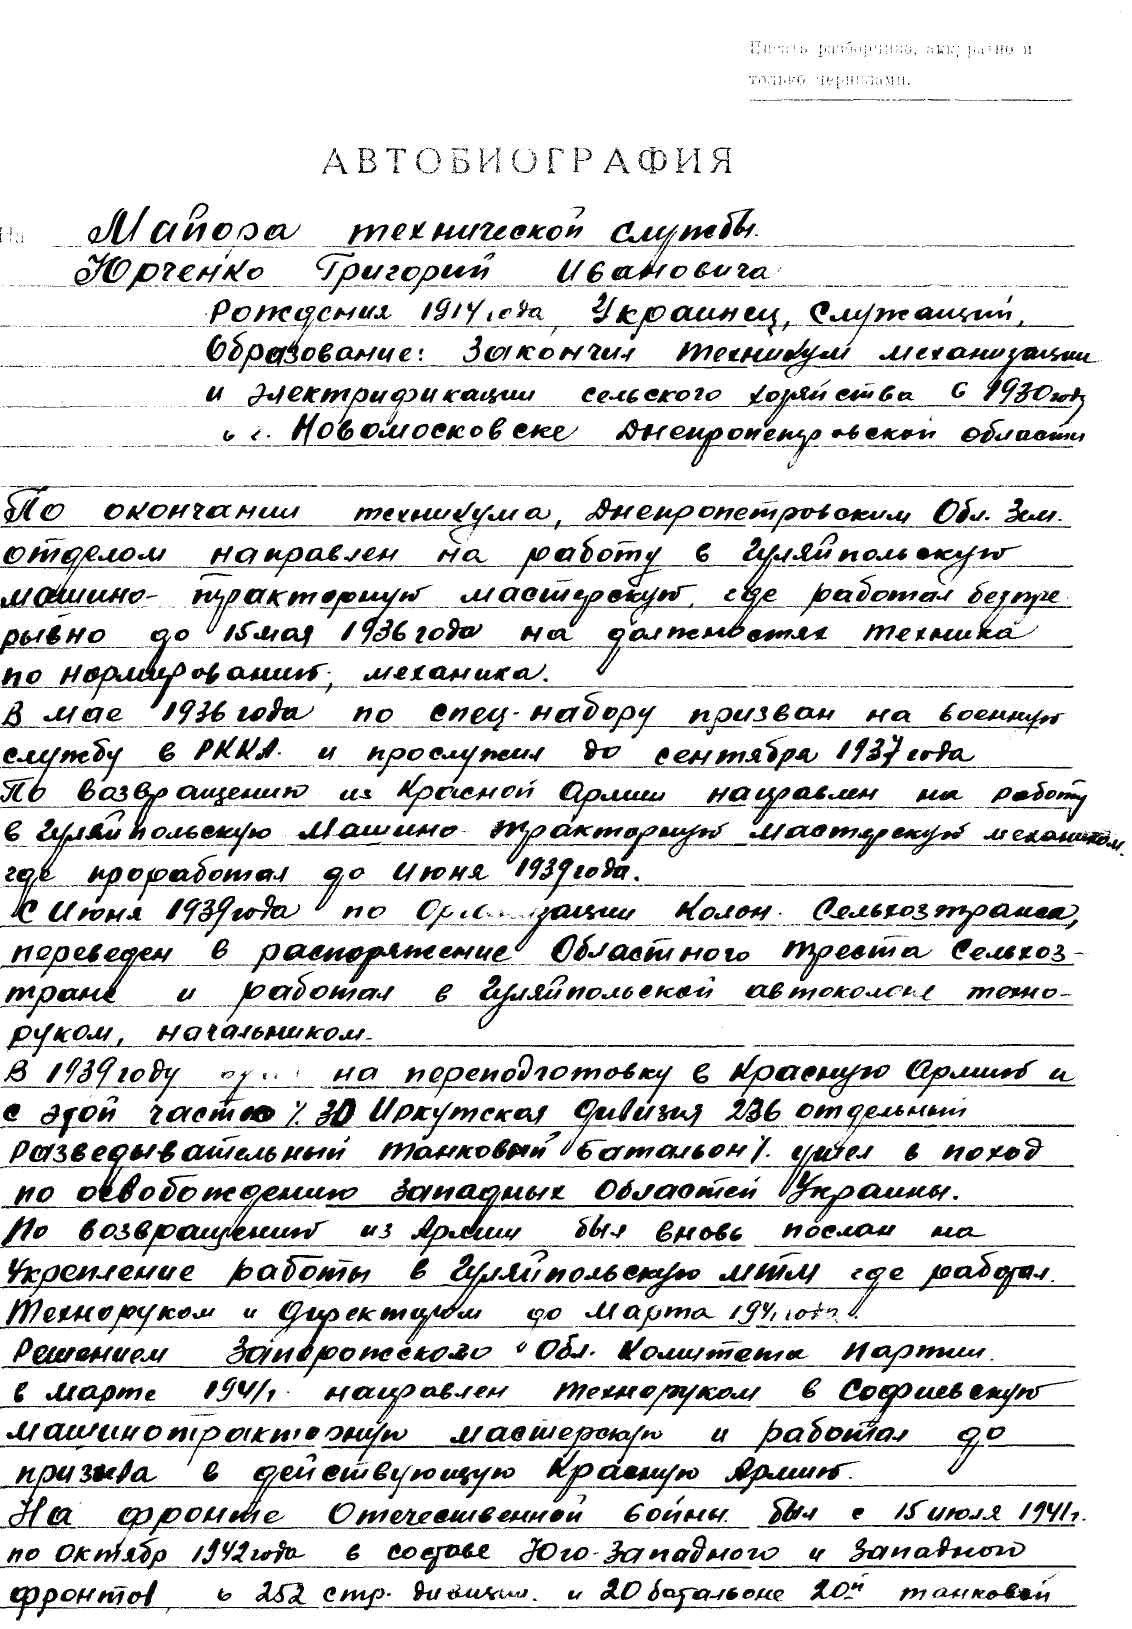 Писать разборчиво, аккуратно и
только чернилами.
АВТОБИОГРАФИЯ
На Майора технической службы.
Юрченко Григорий Ивановича
Рождения 1914 года, Украинец, Служащий,
Образование: Закончил техникум механизации
и электрификации сельского хозяйства в 1930 году
в г. Новомосковске Днепропетровской области
По окончании техникума, Днепропетровским Обл. Зем.
отделом направлен на работу в Гуляйпольскую
машино-тракторную мастерскую, где работал безпре
рывно до 15 мая 1936 года на должностях техника
по нормированию, механика.
В мае 1936 года по спец-набору призван на военную
службу в РККА. и прослужил до сентября 1937 года
По возвращению из Красной Армии направлен на работу
в Гуляйпольскую Машино-тракторную мастерскую механиком.
где проработал до Июня 1939 года.
С Июня 1939 года по Организации Колон. Сельхозтранса,
переведен в распоряжение Областного треста Сельхоз-
транс и работал в Гуляйпольской автоколоне техно-
руком, начальником.
В 1939 году на переподготовку в Красную Армию и
с этой частью /. 30 Иркутская Дивизия 236 отдельный
разведывательный танковый батальон/. ушел в поход
по освобождению Западных Областей Украины.
По возвращению из Армии был вновь послан на
Укрепление работы в Гуляйпольскую МТМ где работал.
Техноруком и Директором до Марта 1941 года.
Решением Запорожского Обл. Комитета Партии.
в марте 1941 г. направлен техноруком в Софиевскую
машинотракторную мастерскую и работал до
призыва в действующую Красную Армию.
На фронте Отечественной войны был с 15 июля 1941 г.
по Октябр 1942 года в составе Юго-Западного и Западного
фронтов, в 252 стр. дивизии. и 20 батальоне 20й танковой